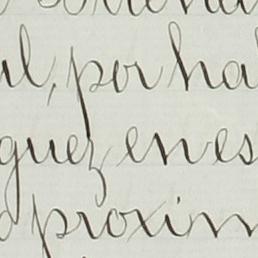 l, por ha
guez en es
proxim